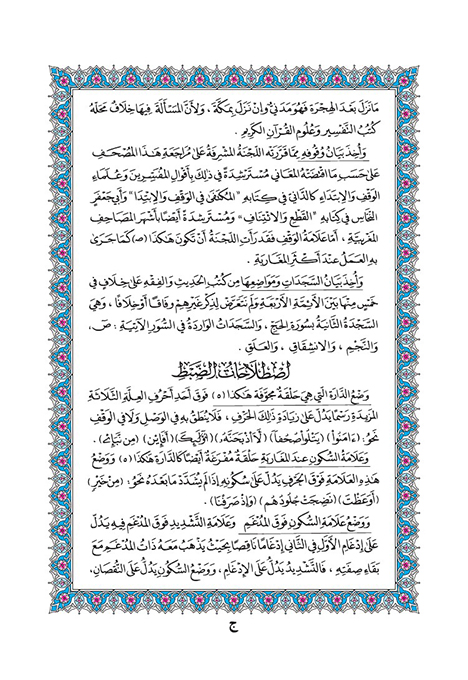 مَانَزَلَ بَعْدَ الهِجْرَةِ فَهُوَمَدَنيٌّ وَإنْ نَزَلَ بِمَكَّةَ ، وَلأَنَّ المَسْأَلَةَ فِيهَا خِلَافٌ مَحَلُّهُ
كُتُبُ التَّفْسِيرِ وَعُلُومِ القُرْآنِ الكَرِيمِ .
وَأُخِذَ بَيَانُ وُقُوفِهِ مِمَّا قَرَّرَتْهُ اللَّجْنَةُ المُشْرِفَةُ عَلَى مُرَاجَعَةِ هَـٰذَا المُصْحَفِ
عَلَى حَسَبِ مَا اقْتَضَتْهُ المَعَانِي مُسْتَرْشِدَةً فِي ذَلِكَ بِأَقْوَالِ المُفَسِّرِينَ وَعُلَمَاءِ
الوَقْفِ وَالابْتِدَاءِ كَالدَّانِيّ فِي كِتَابِهِ "المُكْتَفَى فِي الوَقْفِ وَالابْتِدَا" وَأَبِي جَعْفَرٍ
النَّحَّاسِ فِي كِتَابِهِ "القَطْعِ وَالائْتِنَافِ" وَمُسْتَرْشِدَةً أَيْضًا بِأَشْهَرِ المَصَاحِفِ
المَغْرِبِيَّةِ ، أَمَّا عَلَامَةُ الوَقْفِ فَقَدْ رَأَتِ اللَّجْنَةُ أَنْ تَكُونَ هَـٰكَذَا (صـ) كَمَا جَرَى
بِهِ العَمَلُ عِنْدَ أَكْثَرِ المَغَارِبَةِ .
وَأُخِذَ بَيَانُ السَّجَدَاتِ وَمَوَاضِعِهَا مِن كُتُبِ الحَدِيثِ وَالفِقْهِ عَلَى خِلَافٍ فِي
خَمْسٍ مِنْهَا بَيْنَ الأَئِمَّةِ الأَرْبَعَةِ وَلَمْ نَتَعَرَّضْ لِذِكْرِ غَيْرِهِمْ وِفَاقًا أَوْ خِلَافًا ، وَهِيَ
السَّجْدَةُ الثَّانِيَةُ بِسُورَةِ الحَجِّ ، وَالسَّجَدَاتُ الوَارِدَةُ فِي السُّوَرِ الآتِيَةِ : صَ،
وَالنَّجْمِ ، وَالانشِقَاقِ ، وَالعَلَقِ .
اصْطِلَاحَاتُ الضَّبْطِ
وَضْعُ الدَّارَةِ الَّتِي هِيَ حَلْقَةٌ مُجَوَّفَةٌ هَـٰكَذَا (ه) فَوْقَ أَحَدِ أَحْرُفِ العِلَّةِ الثَّلَاثَةِ
المَزِيدَةِ رَسْمًا يَدُلُّ عَلَى زِيَادَةِ ذَلِكَ الحَرْفِ ، فَلَا يُنْطَقُ بِهِ فِي الوَصْلِ وَلَا فِي الوَقْفِ
نَحْوُ : (ءَامَنُواْ) (يَتْلُواْ صُحُفًا) (لَأَاْذْبَحَنَّهُۥ) (أُوْلَـٰٓئِكَ) (أَفَإِيْن) (مِن نَّبَإِےْ) .
وَعَلَامَةُ السُّكُونِ عِندَ المَغَارِبَةِ حَلْقَةٌ مُفَرَّغَةٌ أَيْضًا كَالدَّارَةِ هَـٰكَذَا (ه) وَوَضْعُ
هَـٰذِهِ العَلَامَةِ فَوْقَ الحَرْفِ يَدُلُّ عَلَى سُكُونِهِ إِذَا لَمْ يُشَدَّدْ مَا بَعْدَهُ نَحْوُ : (مِنْ خَيْرٍ)
(أَوَعَظْتَ) (نَضِجَتْ جُلُودُهُم) (وَإِذْ صَرَفْنَا) .
وَوَضْعُ عَلَامَةِ السُّكُونِ فَوْقَ المُدْغَمِ وَعَلَامَةِ التَّشْدِيدِ فَوْقَ المُدْغَمِ فِيهِ يَدُلُّ
عَلَى إِدْغَامِ الأَوَّلِ فِي الثَّانِي إِدْغَامًا نَاقِصًا بِحَيْثُ يَذْهَبُ مَعَهُ ذَاتُ المُدْغَمِ مَعَ
بَقَاءِ صِفَتِهِ ، فَالتَّشْدِيدُ يَدُلُّ عَلَى الإِدْغَامِ ، وَوَضْعُ السُّكُونِ يَدُلُّ عَلَى النُّقْصَانِ.
ج